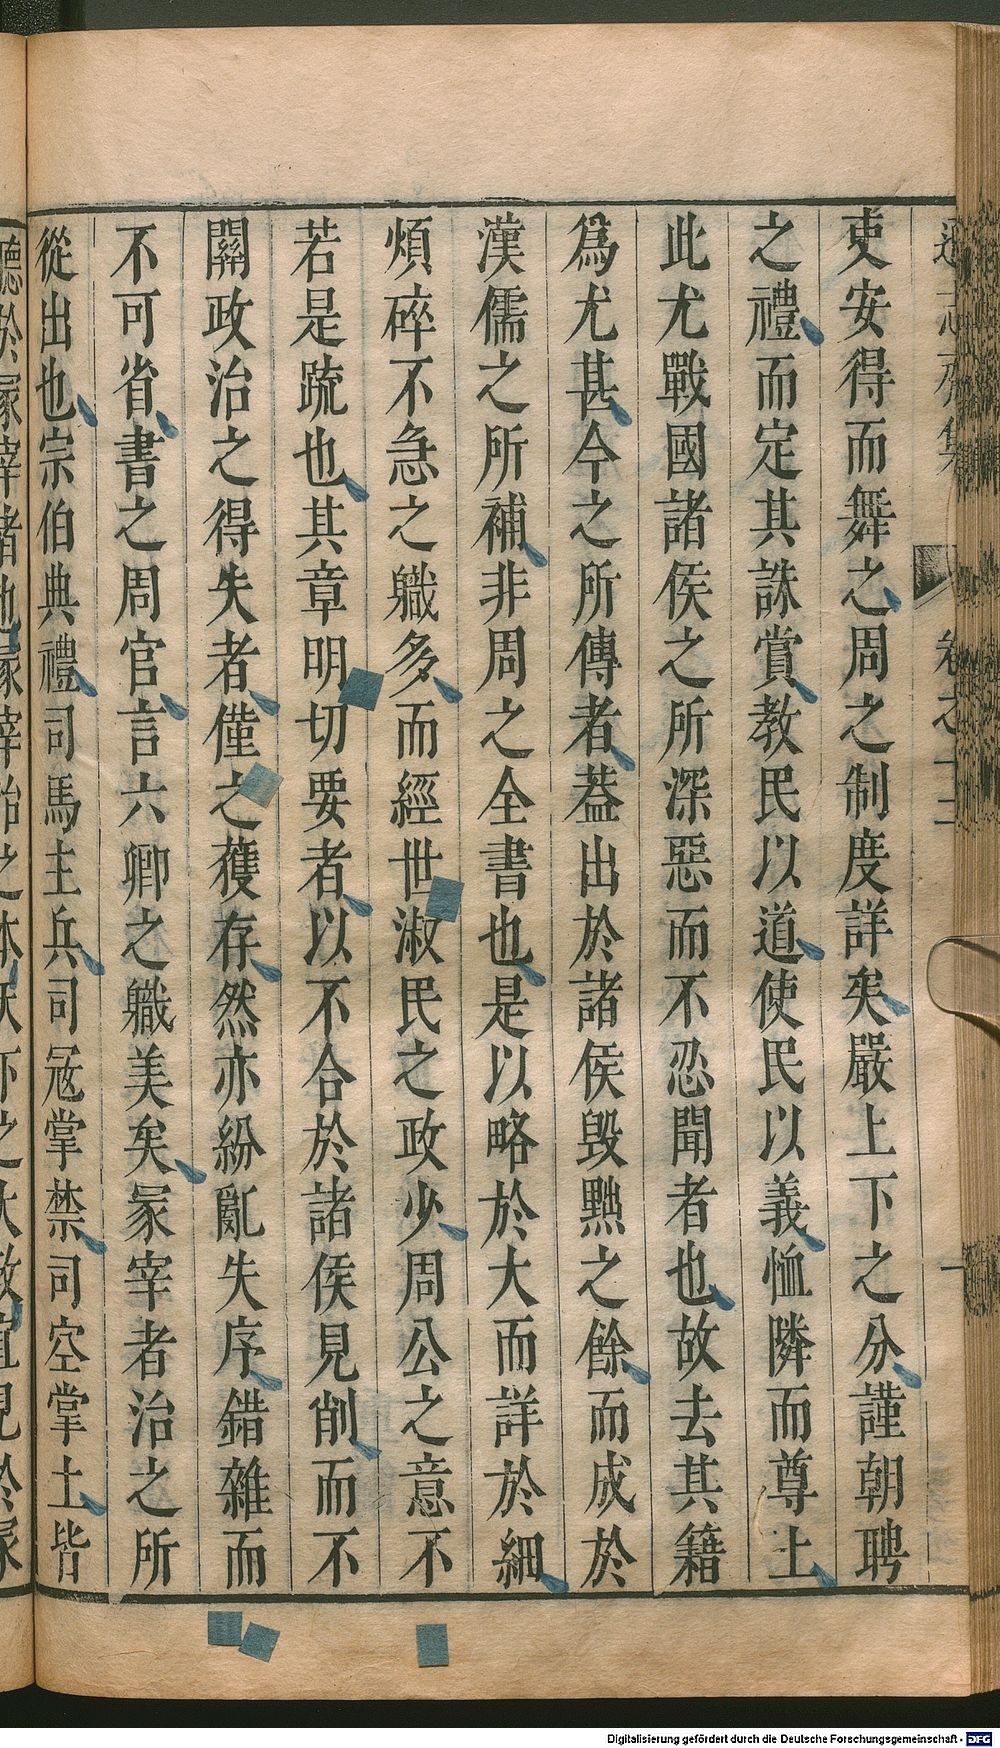 吏安得而舞之周之制度詳矣嚴上下之分謹朝聘
之禮而定其誅賞教民以道使民以義恤隣而尊上
此尤戰國諸侯之所深惡而不忍聞者也故去其籍
爲尤甚今之所傳者葢出於諸侯毁黜之餘而成於
漢儒之所補非周之全書也是以略於大而詳於細
煩碎不急之職多而經世淑民之政少周公之意不
若是疏也其章明切要者以不合於諸侯見削而不
關政治之得失者僅之獲存然亦紛亂失序錯雜而
不可省書之周官言六卿之職美矣冢宰者治之所
從出也宗伯典禮司馬主兵司冦掌禁司空掌土皆
聽於冢宰諸也冢宰治之本
見於冢
卷之十二
一
Digitalisierung gefördert durch die Deutsche Forschungsgemeinschaft - DFG